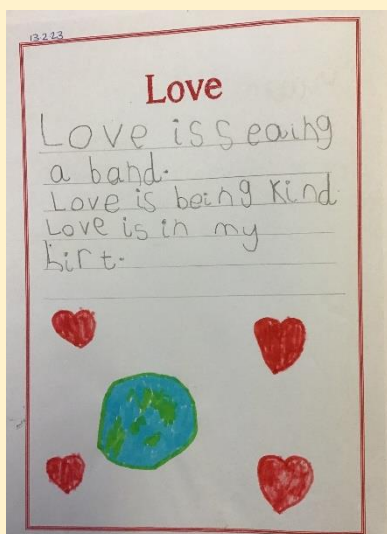 13.2.23
Love
Love is seaing
a band.
Love is being kind
Love is in my
hirt.